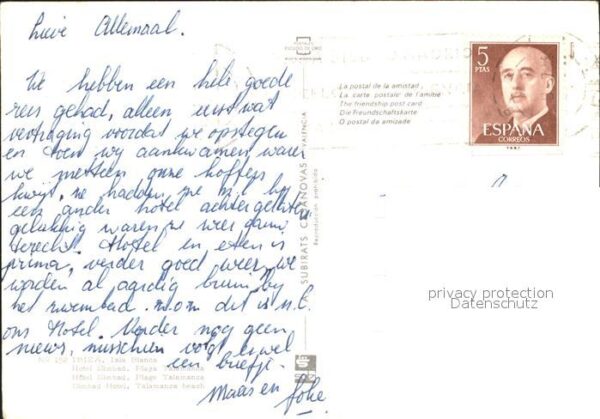 Lieve Allemaal.
We hebben een hele goede
reis gehad, alleen eerst wat
vertraging voordat we opstegen
en toen wy aankwamen waren
we meteen onze koffers
kwijt, ze hadden ze al by
een ander hotel achtergelaten
gelukkig waren ze weer gauw
terecht. Hotel en eten is
prima, verder goed weer, we
worden al aardig bruin by
het zwembad. dit is n.l.
ons Hotel. Verder nog geen
nieuws, misschien volgt er wel
een briefje.
Maas en Joke
POSTALES
ESCUDO DE ORO
La postal de la amistad
La carte postale de l'amitié
The friendship post card
Die Freundschaftskarte
O postal da amizade
SUBIRATS CASANOVAS - VALENCIA
Reproducción prohibida
5
PTAS
ESPAÑA
CORREOS
privacy protection
Datenschutz
IBIZA, Isla Blanca
Hotel Simbad, Playa Talamanca
Hôtel Simbad, Plage Talamanca
Simbad Hotel, Talamanca beach